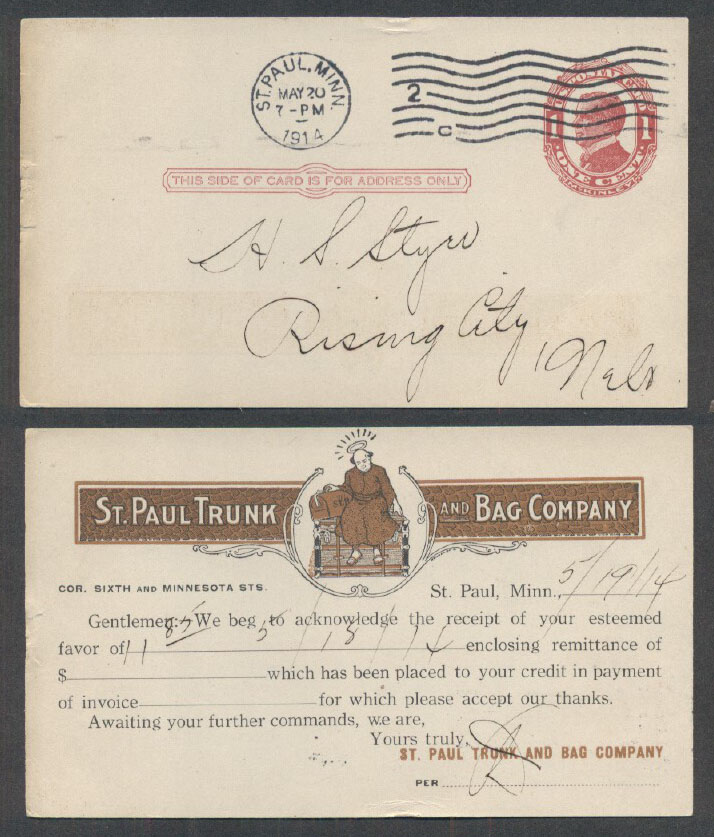 ST. PAUL, MINN.
MAY 20
7-PM
1914
2
C
U.S. POSTAL CARD
1 1
ONE CENT
McKINLEY
THIS SIDE OF CARD IS FOR ADDRESS ONLY
H. S. Styer
Rising City
Nebr
ST. PAUL TRUNK AND BAG COMPANY
COR. SIXTH AND MINNESOTA STS.
St. Paul, Minn., 5/19/14
Gentlemen:- We beg to acknowledge the receipt of your esteemed
favor of 5/18/14 enclosing remittance of
$ 11 85 which has been placed to your credit in payment
of invoice for which please accept our thanks.
Awaiting your further commands, we are,
Yours truly,
ST. PAUL TRUNK AND BAG COMPANY
PER